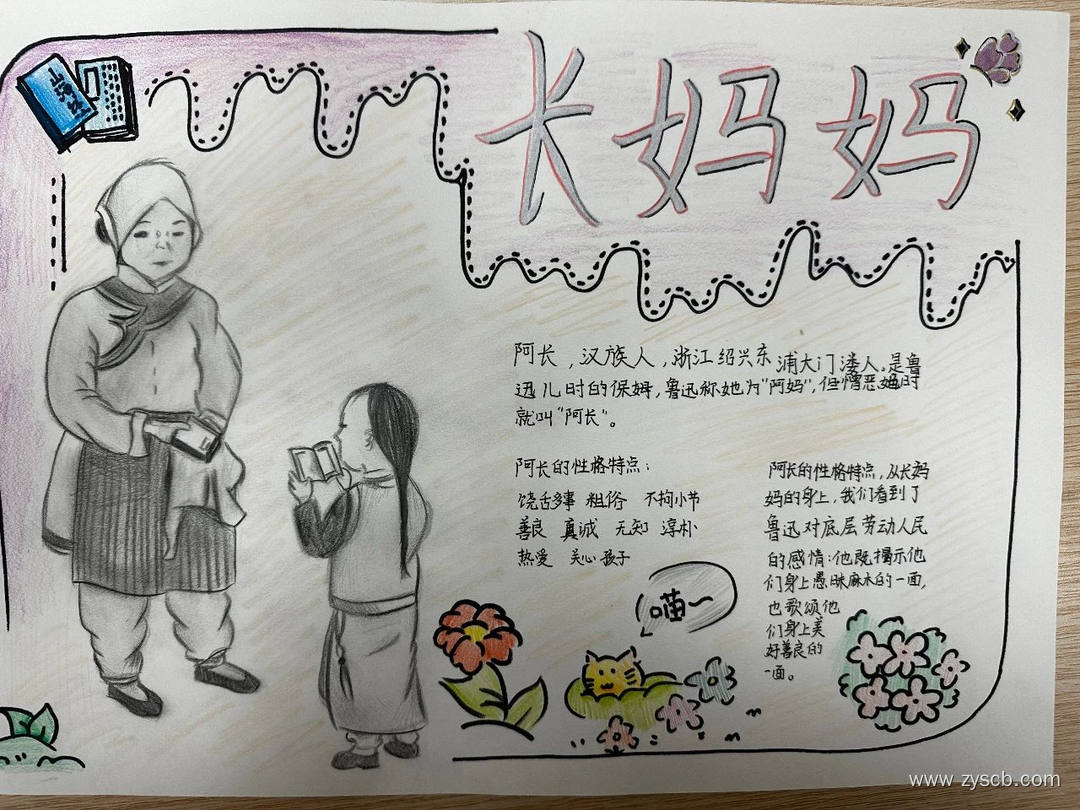 山海经
长妈妈
阿长,汉族人,浙江绍兴东浦大门溇人。是鲁
迅儿时的保姆,鲁迅称她为“阿妈”,但憎恶她时
就叫“阿长”。
阿长的性格特点:
饶舌多事 粗俗 不拘小节
善良 真诚 无知 淳朴
热爱 关心孩子
阿长的性格特点,从长妈
妈的身上,我们看到了
鲁迅对底层劳动人民
的感情:他既揭示他
们身上愚昧麻木的一面,
也歌颂他
们身上美
好善良的
一面。
喵~
www.zyscb.com